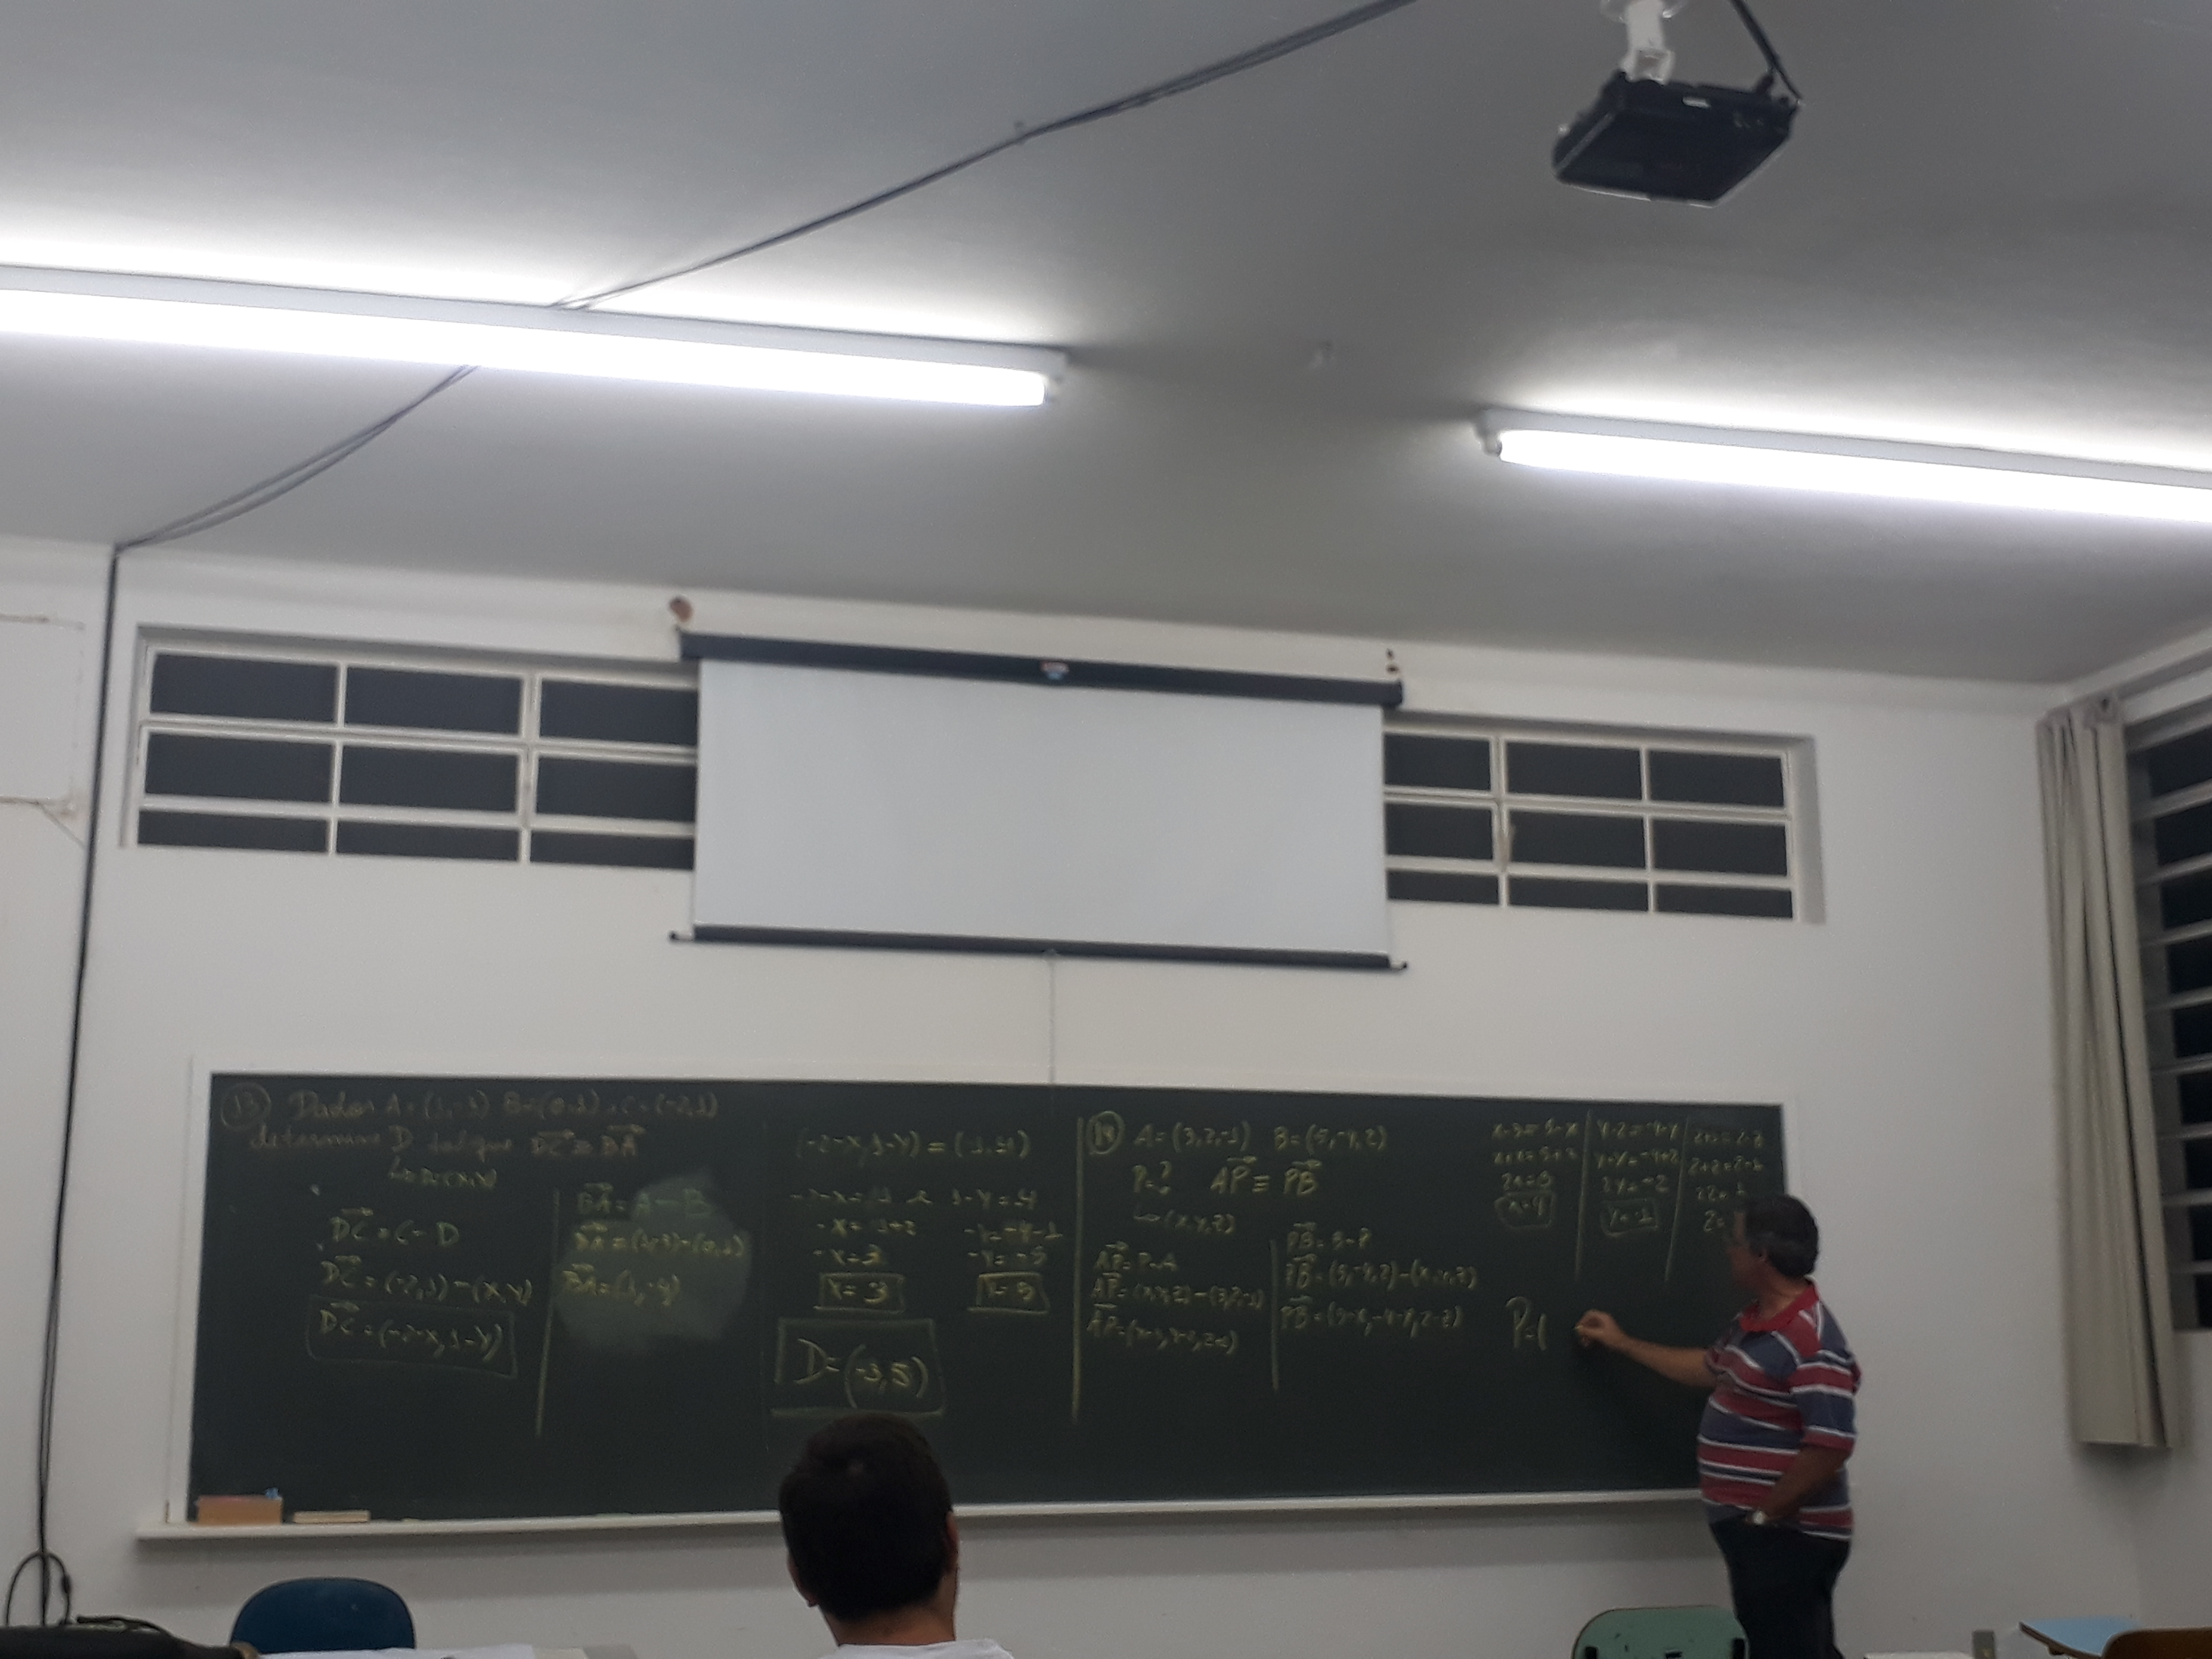 13 Dados A = (1,-3) B = (0,1) C = (-2,1)
determinar D tal que DC ≡ BA
DC = C - D
DC = (-2,1) - (x,y)
DC = (-2-x, 1-y)
BA = A - B
BA = (1,-3) - (0,1)
BA = (1,-4)
(-2-x, 1-y) = (1,-4)
-2-x = 1 e 1-y = -4
-x = 1+2
-y = -4-1
-x = 3
-y = -5
y = 5
D = (-3,5)
14 A = (3,2,-1) B = (5,-4,2)
P = ? AP ≡ PB
(x,y,z)
AP = P-A
AP = (x,y,z) - (3,2,-1)
PB = B-P
PB = (5,-4,2) - (x,y,z)
PB = (5-x, -4-y, 2-z)
x-3 = 5-x
x+x = 5+3
2x = 8
x = 4
y-2 = -4-y
y+y = -4+2
2y = -2
y = -1
P = (